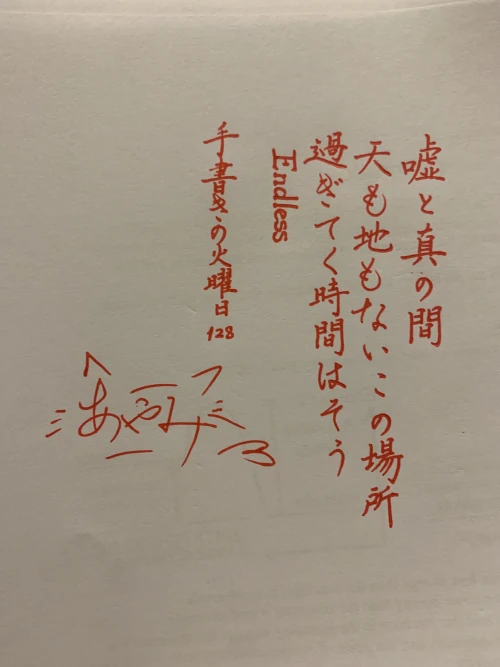 嘘と真の間
天も地もないこの場所
過ぎてく時間はそう
Endless
手書きの火曜日128
あやみ